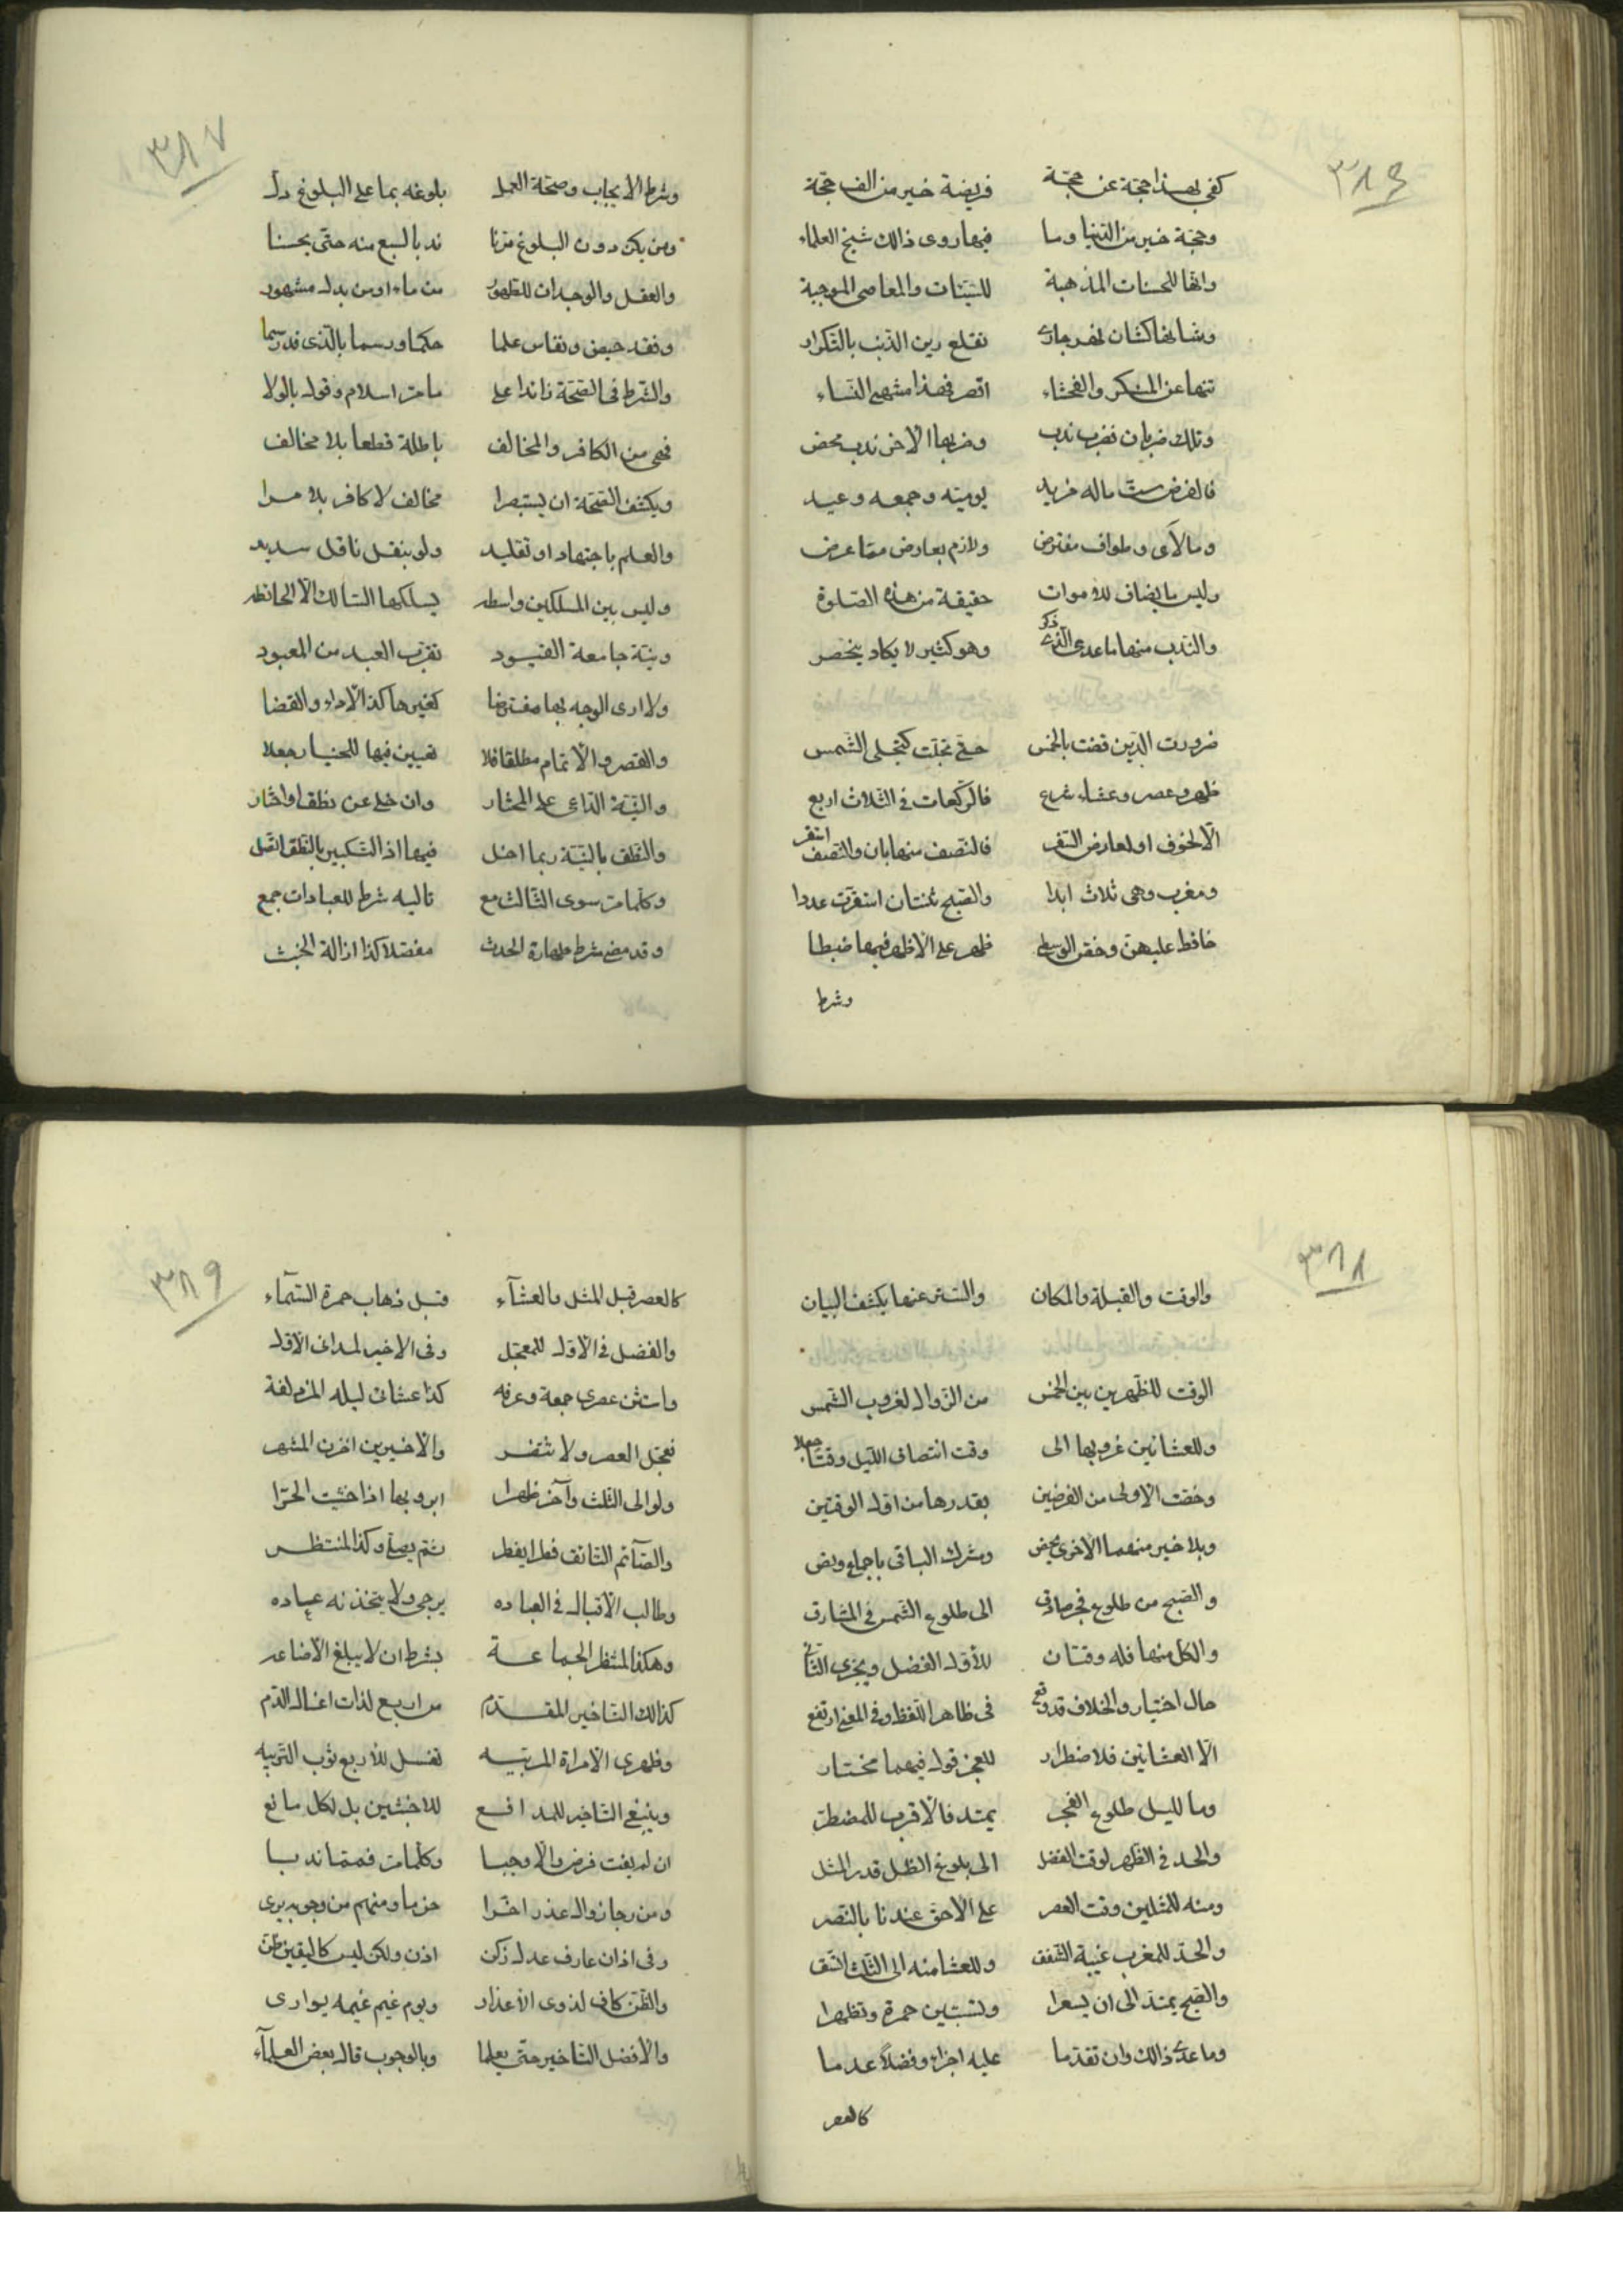 ٣٨٦
كفى بهذا حجة عن حجة فريضة خير من الف حجة
وحجة خير من الدنيا وما فيها روى ذالك شيخ العلماء
وانها للحسنات المذهبة للسيئات والمعاصى الموجبة
وشانها كشان نهر جارى تقلع رين الذنب بالتكرار
تنها عن المنكر والفحشاء اقصر فهذا منتهى الثناء
وتلك ضربان فضرب ندب وضربها الاخر ندب محض
فالفرض ست ماله مزيد يومية وجمعه وعيد
وما لآى وطواف مفترض ولازم بعارض مما عرض
وليس ما يضاف للاموات حقيقة من هذه الصلوة
والندب منها ما عدى الذى ذكر وهو كثير لا يكاد ينحصر
ضرورت الدين قضت بالخمس حتى تجلت كتجلى الشمس
ظهر وعصر وعشاء شرع فالركعات فى الثلاث اربع
الا لخوف او لعارض السفر فالنصف منها بان والنصف استقر
ومغرب وهى ثلاث ابدا والصبح ثنتان استقرت عددا
حافظ عليهن وخص الوسطى ظهر على الاظهر فيها ضبطا
وشرط
٣٨٧
وشرط الايجاب وصحة العمل بلوغه بما على البلوغ دل
ومن يكن دون البلوغ مرنا ندبا لسبع منه حتى يحسنا
والعقل والوجدان للطهور من ماء او من بدل مشهور
وفقد حيض ونفاس علما حكما ورسما بالذى قد رسما
والشرط فى الصحة زائدا على ما مر اسلام وقول بالولا
فهى من الكافر والمخالف باطلة قطعا بلا مخالف
ويكشف الصحة ان يستبصرا مخالف لا كافر بلا مرا
والعلم باجتهاد او تقليد ولو بنقل ناقل سديد
وليس بين المسلكين واسطه يسلكها السالك الا الحائطه
ونية جامعة القيود تقرب العبد من المعبود
ولا ارى الوجه بها مفترضا كغيرها كذا الاداء والقضا
والقصر والاتمام مطلقا فلا تعيين فيها للخيار جعلا
والنية الداعى على المختار وان خلى عن نطق او اخطار
والنطق بالنية ربما اخل فيها اذا التكبير بالنطق اتصل
وكلما مر سوى الثالث مع تاليه شرط للعبادات جمع
وقد مضى شرط طهارة الحدث مفصلا كذا ازالة الخبث
٣٨٨
والوقت والقبلة والمكان والستر عنها يكشف البيان
الوقت للظهرين بين الخمس من الزوال لغروب الشمس
وللعشائين غروبها الى وقت انتصاف الليل وقتا جعلا
وخصت الاولى من الفرضين بقدرها من اول الوقتين
وبلا خير منهما الاخرى يخص ومشرك الباقى باجماع ونص
والصبح من طلوع فجر صادق الى طلوع الشمس فى المشارق
والكل منها فله وقتان للاول الفضل ويجزى الثانى
حال اختيار والخلاف قد وقع فى ظاهر اللفظ وفى المعنى ارتفع
الا العشائين فلاضطرار للعجز قول فيهما مختار
وما لليل طلوع الفجر يمتد فالاقرب للمضطر
والحد فى الظهر لوقت الفضل الى بلوغ الظل قدر المثل
ومنه للمثلين وقت العصر على الاحق عندنا بالنصر
والحد للمغرب غيبة الشفق وللعشا منه الى الثلث اتسق
والصبح يمتد الى ان يسفرا وتستبين حمرة وتظهرا
وما عدى ذالك وان تقدما عليه اجزاء وفضلا عدما
كالعصر
٣٨٩
كالعصر قبل المثل والعشآء قبل ذهاب حمرة السمآء
والفضل فى الاول للمعجل وفى الاخير لمدانى الاول
واستثن عصرى جمعة وعرفه كذا عشائى ليله المزدلفة
فعجل العصر ولا تنتظر والاخيرين اخرن للمشعر
ولو الى الثلث وآخر ظهرا ابرد بها اذا خشيت الحرا
والصآئم التائق فعل ايفطر ثم يصلى وكذا المنتظر
وطالب الاقبال فى العباده يرجى ولا يتخذنه عباده
وهكذا المنتظر الجماعة بشرط ان لا يبلغ الاضاعه
كذالك التاخير للمقدم من اربع لذات اغسال الدم
وظهرى الامراة المربيه تغسل للاربع ثوب التربيه
وينبغى التاخير للمدافع للاخبثين بل لكل مانع
ان لم يفت فرض والا وجبا وكلما مر فمما ندبا
ومن رجا زوال عذر اخرا حزما ومنهم من وجوبه يرى
وفى اذان عارف عدل زكن اذن ولكن ليس كاليقين ظن
والظن كاف لذوى الاعذار ويوم غيم غيمه يوارى
والافضل التاخير حتى يعلما وبالوجوب قال بعض العلمآء